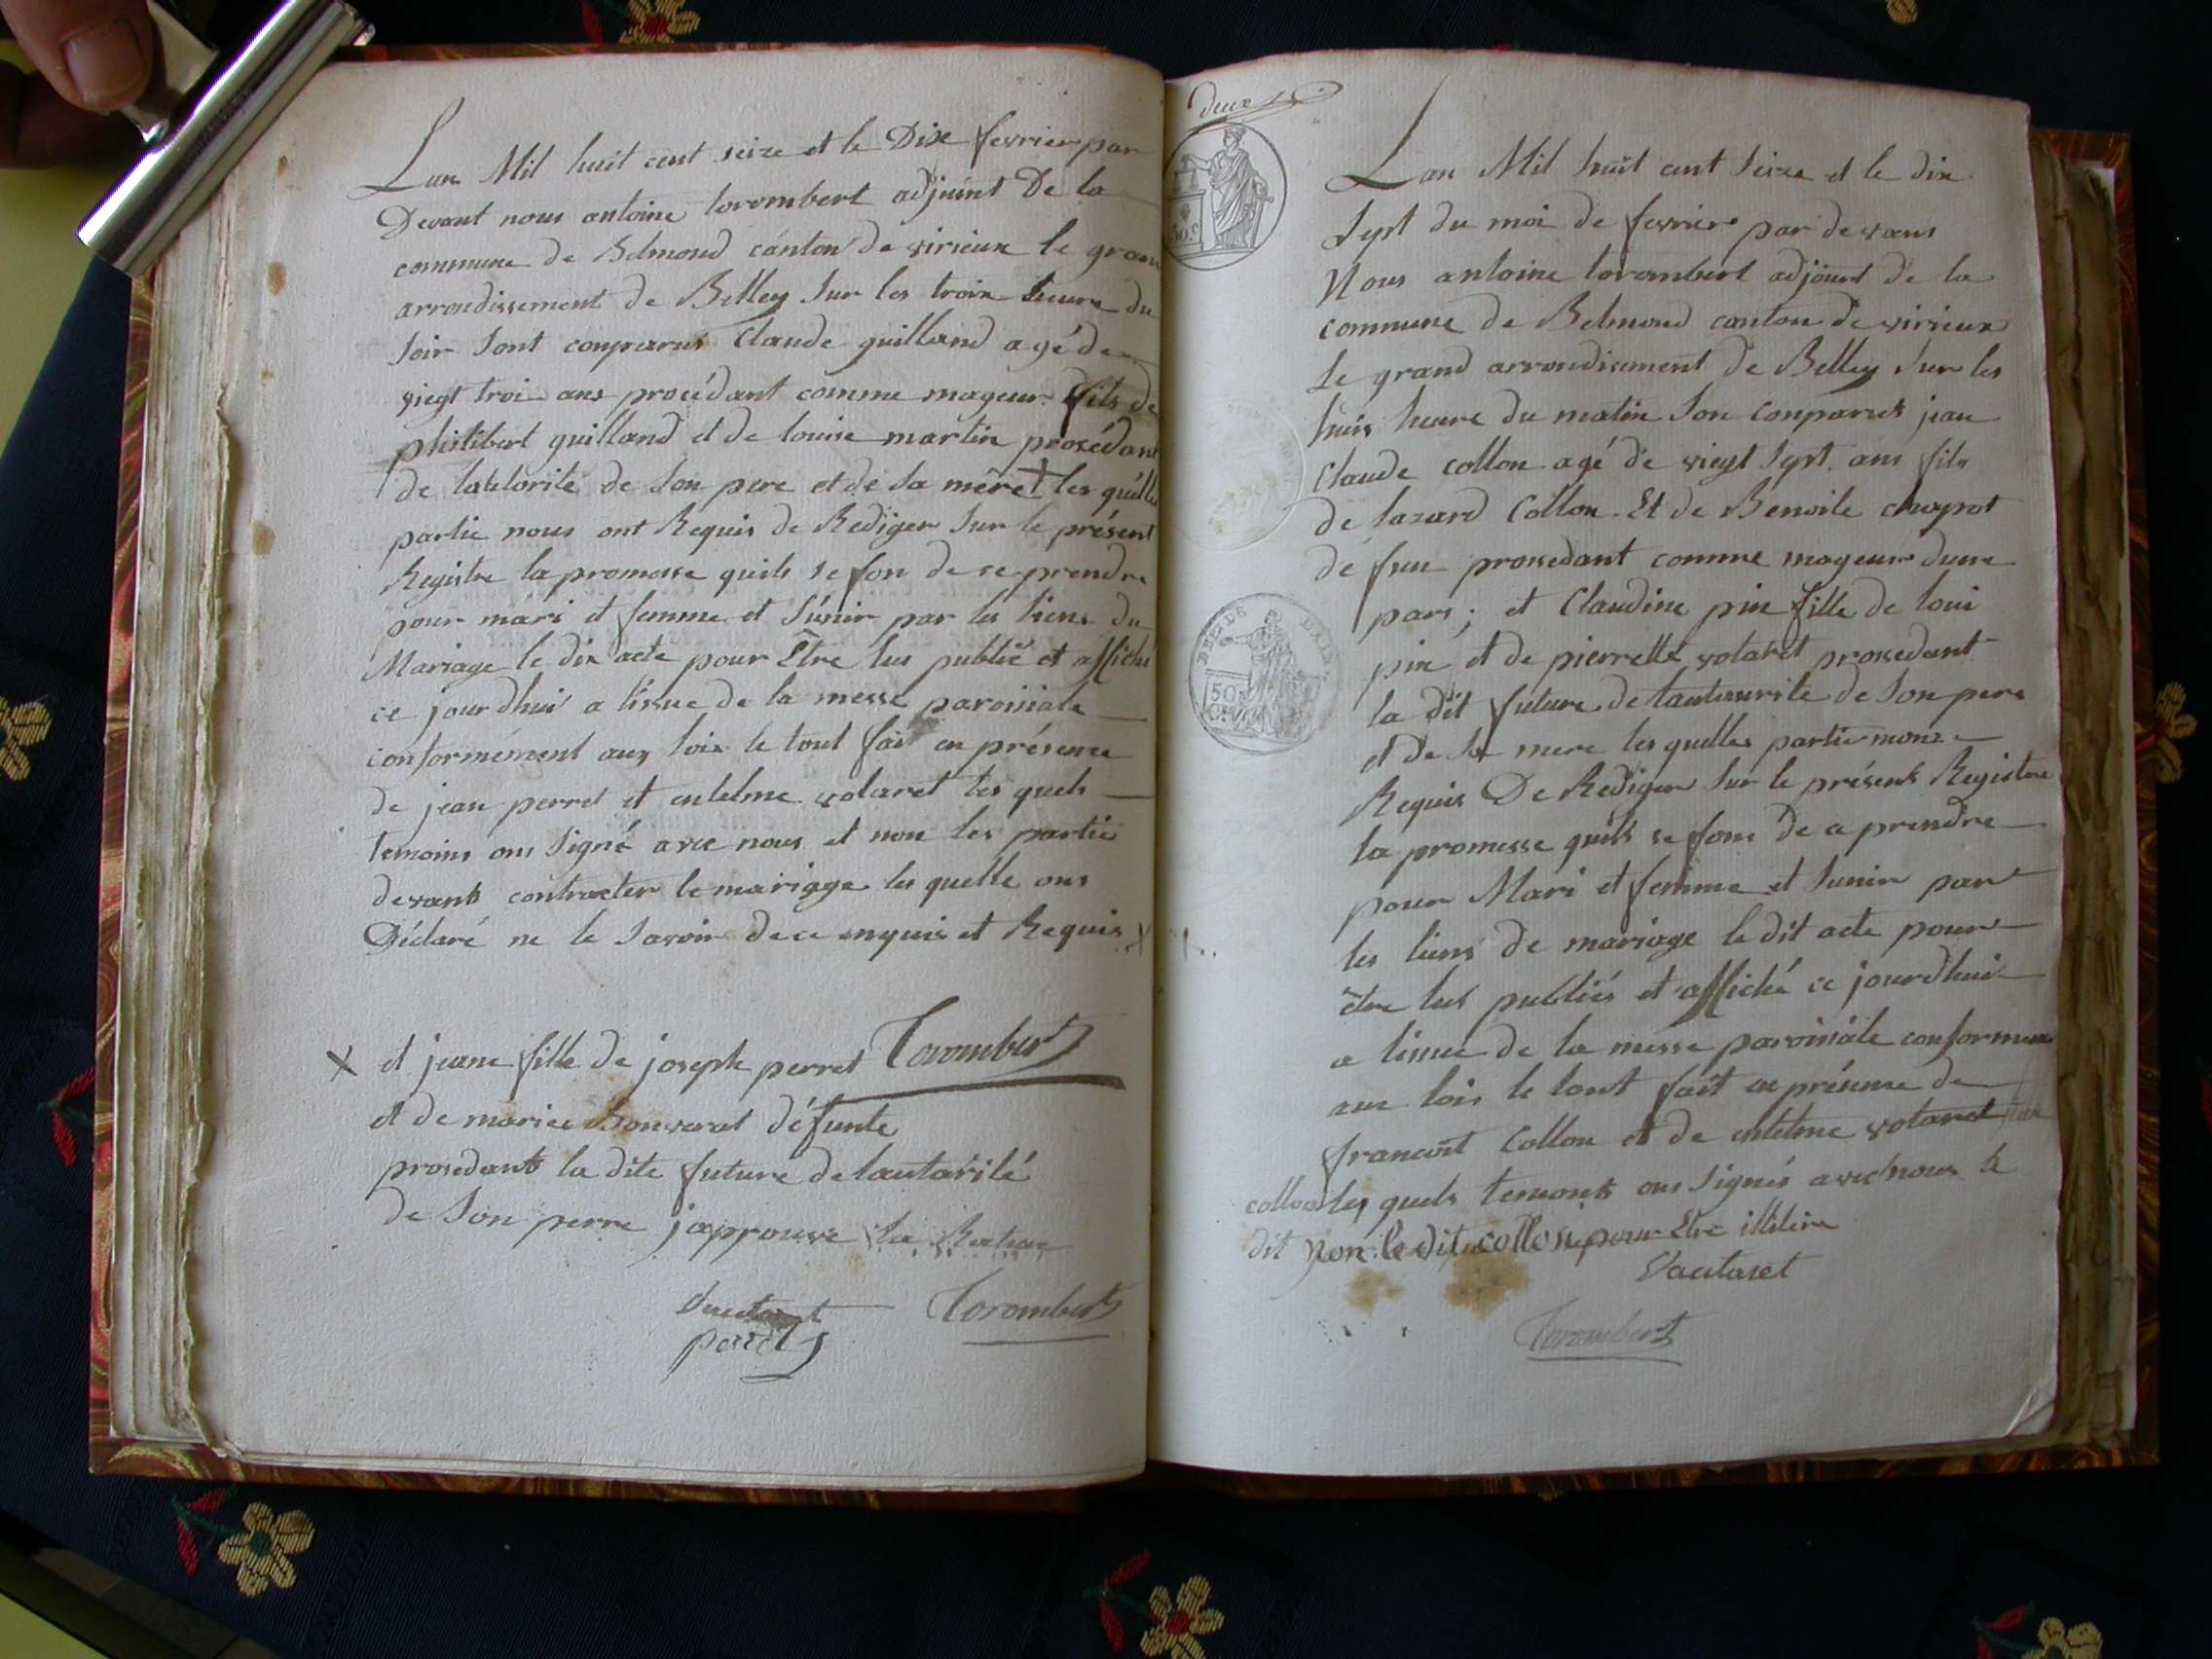 Lan Mil huit cent seize et le Dix fevrier par
Devant nous antoine torombert adjoint De la
commune de Belmond canton de virieux le gran
arrondissement de Belley sur les troix heure du
soir sont conparus Claude guilland agé de
viegt troi ans procédant comme mageur fils de
philibert guilland et de louise martin prosédant
de lautorité de son pere et de sa mère X les quelles
partie nous ont Requis de Rediger sur le présent
Registre la promesse quils se fon de se prendre
pour mari et femme et sunir par les liens du
Mariage le dix acte pour Etre lus publié et affiché
ce jourdhui a lissue de la messe paroissiale
conformément aux loix le tout fait en présence
de jean perret et entelme votaret les quels
temoins ons signé avec nous et non les partie
devants contracter le mariage les quelle ons
Déclaré ne le savoir de ce enquis et Requis X
X et jeane fille de joseph perret Torombert
et de mariee Bonverat défunte
prosedant la dite future de lautarité
de son perre japprouve la
perret
Torombert
deux
50 c
Lan Mil huit cent seize et le dix
sept du moi de fevrier par devans
Nous antoine torombert adjoint de la
commune de Belmond canton de virieux
Le grand arrondisement de Belley sur les
huis heure du matin son conparus jean
Claude collon agé de viegt sept ans fils
de lazard Collon Et de Benoite
défun prosedant comme mageur dune
pars ; et Claudine pin fille de loui
pin et de pierrette votaret prosedant
la dit future de lautaurite de son pere
et de sa mere les quelles partie mons
Requis De Rediger sur le présent Registre
la promesse quils se fons De ce prendre
pour Mari et femme et sunir par
les liens de mariage le dit acte pour
être lus publiés et affiché ce jourdhui
a lissue de la messe paroissiale conformem
aux lois le tout fait en présence de
francoit Collon et de entelme votaret
collon les quels temoins ons signés avec nous le
dit Non le dit collon pour Etre illiterė
Vautaret
Torombert